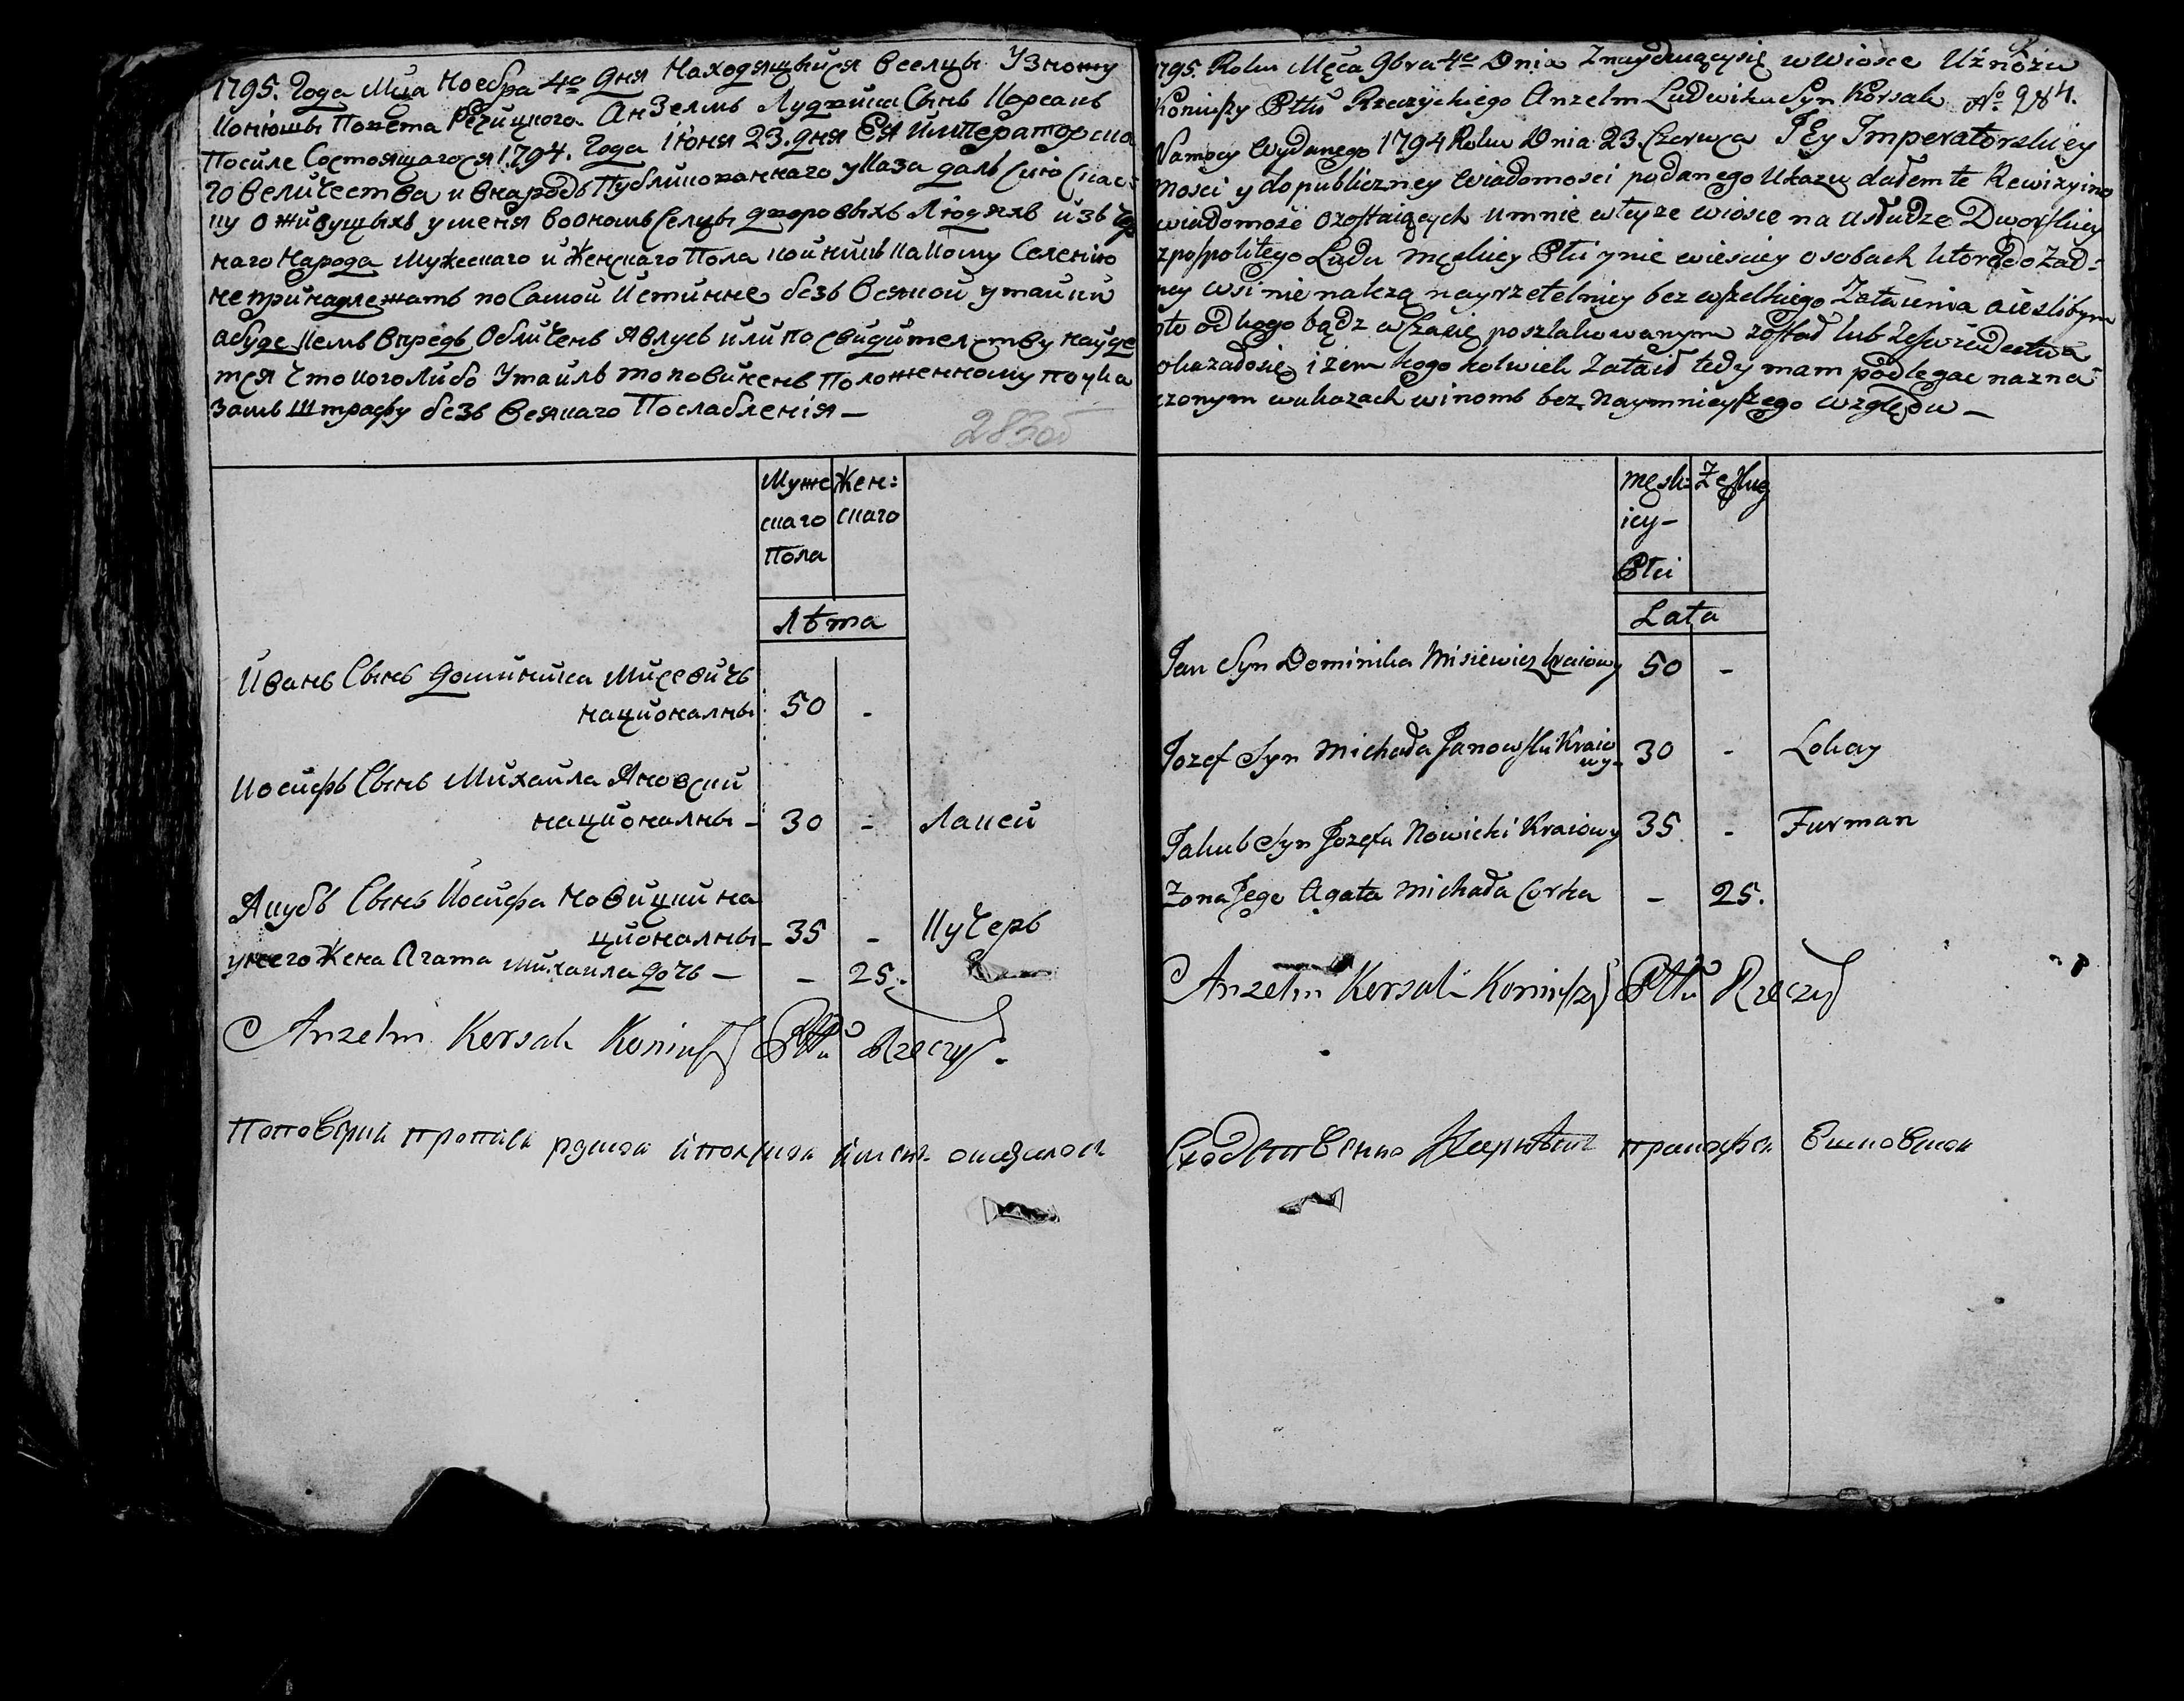 1795. Года Мца Ноебра 4го Дня Находящыйся Вселцы Узножу
Конюшы Повета Речицкого Анзелмъ Лудвика Сынъ Корсакъ
Посиле Состоящагося 1794. Года Июня 23. дня Ея Императорско
го величества и внародъ Публикованнаго указа далъ сию скас:
ку о живущыхъ уменя воономъ Селцы дворовыхъ Людяхъ изъ чер
наго Народа Мужескаго и Женскаго Пола кои никъ Какому Селению
непринадлежатъ по Самой Истинне безъ Всякой утайки
абуде кемъ впредъ Обличенъ Явлусъ или по свидителству найде
тся Что коголибо Утаилъ то повиненъ Положенному поука
замъ Штрафу безъ Всякаго Послабления —
283об
Муже Жен:
скаго скаго
Пола
Лѣта
Иванъ Сынъ Доминика Мисевичъ
националны 50 -
Иосифъ Сынъ Михаила Яновский
националны - 30 - Лакей
Якубъ Сынъ Иосифа Новицкий на
ционалны - 35 - Кучеръ
унего Жена Агата Михаила дочъ — - 25.
Anzelm Korsak Koniuszy Pttu Rzeczy.
1795. Roku Męca 9bra 4go Dnia Znayduiącysię w Wiosce Uźnożu
Koniuszy Pttu Rzeczyckiego Anzelm Ludwika Syn Korsak No 984.
Namocy Wydanego 1794 Roku Dnia 23. Czerwca JEy Imperatorskiey
mosci y do publiczney wiadomosci podanego Ukazu dałem te Rewizyino
wiadomość ozostaiących umnie wteyze wiosce na usłudze Dworskiey
zpospolitego Ludu męskiey Płci ynie wiesciey osobach ktore do Zad:
ney wsi nie nalezą nayrzetelniey bez wszelkiego Zataienia aieslibym
oto od kogo bądz wczasie poszlakowanym został lub Zeswiadectwa
okazałosię izem kogo kolwiek Zataił tedy mam podlegac nazna:
czonym wukazach winomb bez Naymnieyszego względu —
męsk: Zęskiey
iey —
Płci
Lata
Jan Syn Dominika Misiewicz kraiowy 50 -
Jozef Syn Michała Janowski Kraio
wy - 30 - Lokay
Jakub Syn Jozefa Nowicki Kraiowy 35 - Furman
Zona Jego Agata Michała Corka - 25.
Anzelm Korsak Koniuszy Pttu Rzeczy